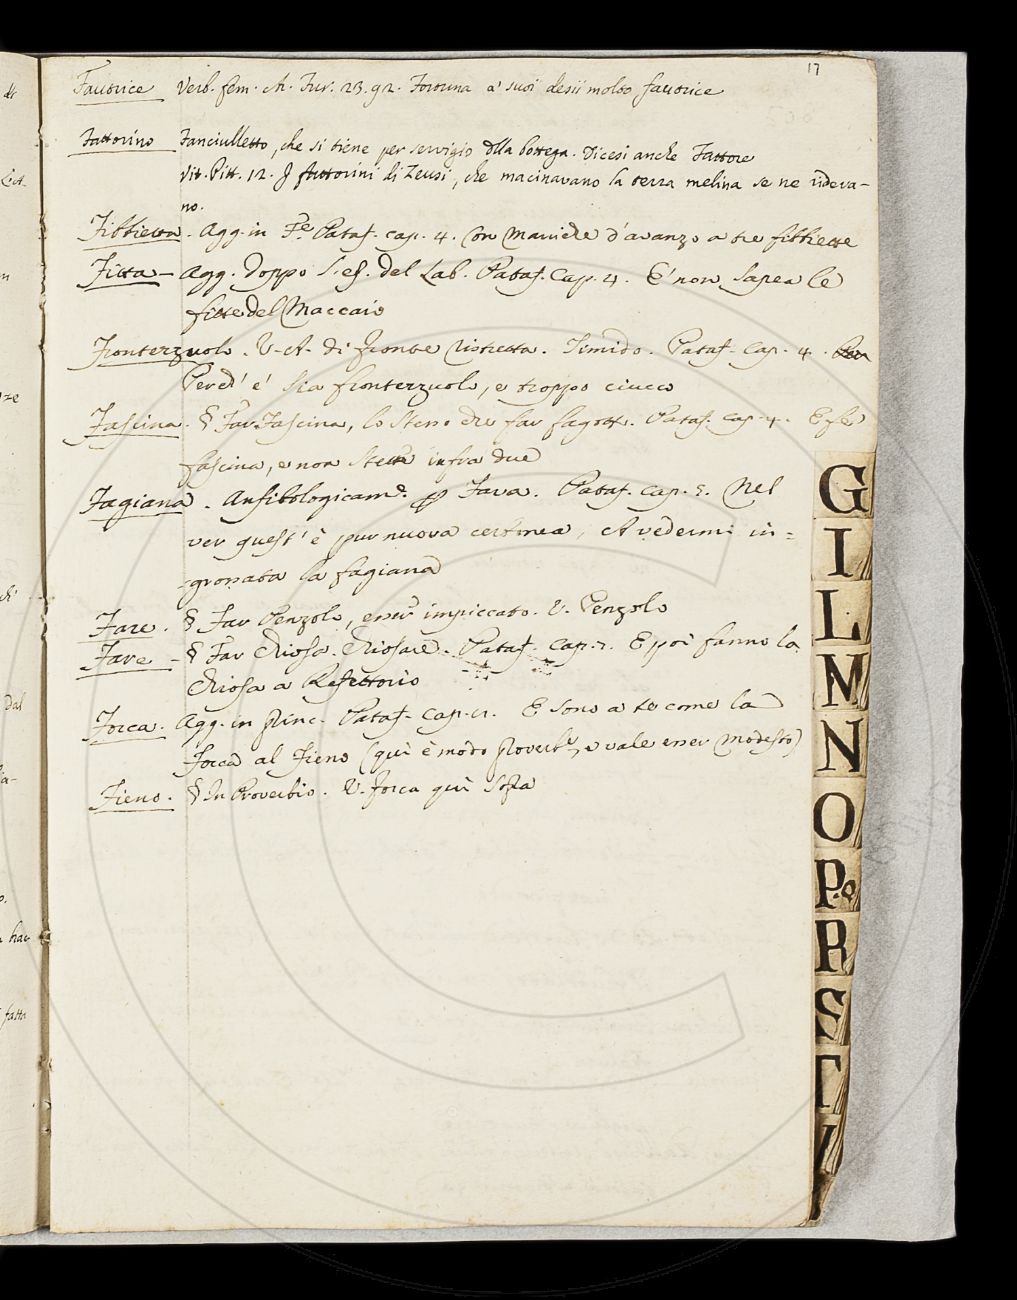 17
Fautrice Verb. fem. Ar. Fur. 23. 92. Fortuna a' suoi desii molto fautrice
Fattorino Fanciulletto, che si tiene per servigio dlla bottega. Dicesi anche Fattore
Vit. Pitt. 12. I fattorini di Zeusi, che macinavano la terra melina se ne rideva-
no.
Fibbietta. Agg. in Fe Pataf. cap. 4. Con Maniche d'avanzo a tre fibbiette
Fitta - Agg. doppo l'es. del Lab. Pataf. Cap. 4. E' non sapea le
fitte del Maccaio
Fronterzuolo. V. A. di fronte ristretta. Timido. Pataf. Cap. 4.
Perch' e' sia fronterzuolo, e troppo ciucco
Fascina. § Far Fascina, lo stesso che far fagotto. Pataf. cap. 4. E fe'
fascina, e non stette infra due
Fagiana. Anfibologicame. p Fava. Pataf. Cap. 5. Nel
ver quest' è pur nuova cerbinea, A vedermi in=
grossata la fagiana
Fare. § Far Penzolo, esser impiccato. V. Penzolo
Fare - § Far Chiosa, Chiosare. Pataf. cap. 7. E poi fanno la
Chiosa a Refettorio
Forca. Agg. in princ. Pataf. Cap. E sono a te come la
Forca al Fieno (qui è modo proverble, e vale esser Modesto)
Fieno. § In Proverbio. V. Forca qui sopra
G
I
L
M
N
O
P.Q
R
S
T
V
dal
fatti